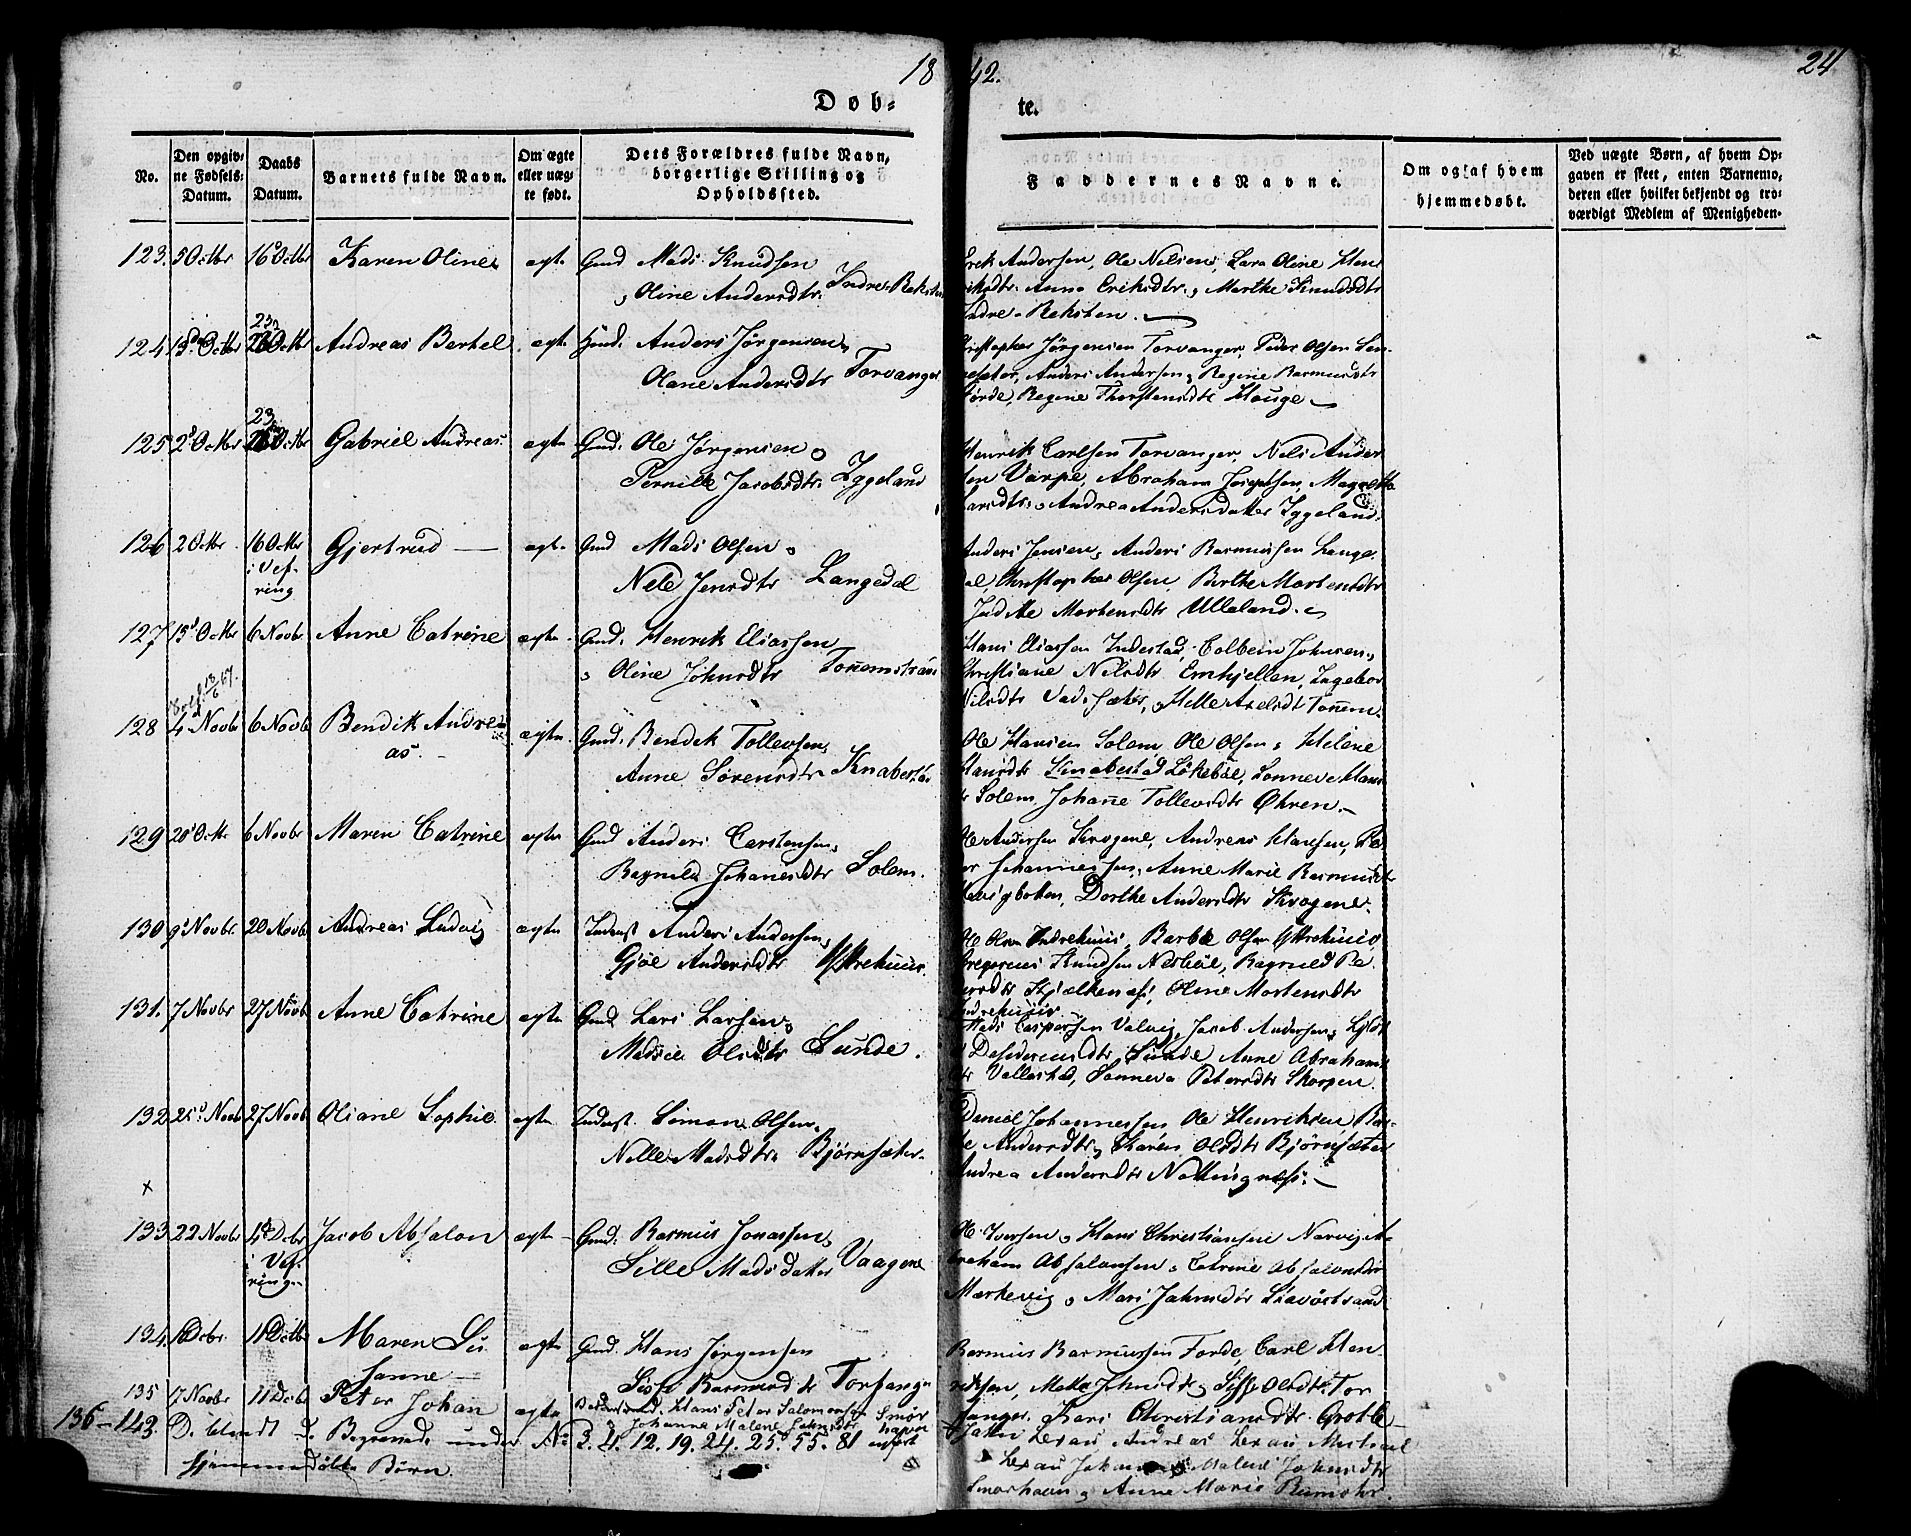 1842.
24
Døbte.
No.
Den opgivne Fødsels-Datum.
Daabs Datum.
Barnets fulde Navn.
Om ægte eller uægte født.
Dets Forældres fulde Navn, borgerlige Stilling og Opholdssted.
Faddernes Navne.
Om og af hvem hjemmedøbt.
Ved uægte Børn, af hvem Opgaven er skeet, enten Barnemoderen eller hvilket bekjendt og troværdigt Medlem af Menigheden.
123. 5 Octbr 16 Octbr Karen Oline ægte Gmd Mads Knudsen
Oline Andersdtr. Indre Reksten
Erik Andersen, Ole Nielsen, Lava Oline Hen
Eriksdtr. Anna Eriksdtr., Marthe Knudsdtr
Indre Reksten.
124 13 Octbr 23 Octbr Andreas Berthel ægte Gmd. Anders Jørgensen
Oliane Andersdtr Torvanger
Christopher Jørgensen Torvanger, Peder Olsen
Anders Andersen, Regine Rasmusdtr
Førde, Regine Thorstensdtr Hauge
125 2 Octbr 23 Octbr Gabriel Andreas ægte Gmd. Ole Jørgensen
Pernille Jacobsdtr. Yggeland
Henrik Carlsen Torvanger, Nels Ander
sen Varpe, Abraham Josephsen, Magrethe
Larsdtr. Andrea Andersdatter Yggeland.
126 2 Octbr 16 Octbr Gjertrud ægte Gmd Mads Olsen
i Vef-
ring
Nele Jensdtr Langedal
Anders Jensen, Anders Rasmussen Lange
dal, Christopher Olsen, Berthe Mortensdtr
Judithe Mortensdtr Ulleland.
127 15 Octbr 6 Novbr Anne Catrine ægte Gmd. Henrik Eliassen
Oline Johnsdtr
Hans Eliassen Indestad, Colbein Johnsen
Christiane Nilsdtr Emhjellen, Ingebor
Nilsdtr Vadsæter, Helle Axelsdt
128 4 Novbr 6 Novbr Bendik Andre
as. ægte Gmd. Bendik Tollevsen
Anne Sørensdtr Knabestad
Ole Hansen Solem, Ole Olsen, Helene
Hansdtr Knabestad Løkebøe, Sonneve Hans
dtr Solem Johane Tollevsdtr Øhren.
129 20 Octbr 6 Novbr Maren Catrine ægte Gmd Anders Carstensen
Ragnild Johanesdtr Solem.
Ole Andersen Krogene, Andreas Hansen, Pe
der Johannessen, Anne Marie Rasmusdtr
Dorthe Andersdtr Krogene.
130 9 Novbr. 20 Novbr Andreas Ludvig ægte Inderst Anders Andersen
Gjøe Andersdtr Yttrehuus.
Ole Olsen Indrehuus, Barbæ Olsen Yttrehuus,
Gregorius Knudsen Nesbøe, Ragnild Pe
dersdtr Oline Mortensdtr
Indrehuus
131. 7 Novbr 27 Novbr Anne Catrine ægte Gmd. Lars Larsen
Madsie Olsdtr Sunde.
Mads Caspersen Jacob Andersen
Desideriusdtr Sunde, Anne Abrahams
dtr Vallestad, Sonneva Petersdtr Skorpen.
132 25 Novbr 27 Novbr Oliane Sophie. ægte Inderst. Simon Olsen
Nelle Madsdtr. Bjørnsæter
Daniel Johannessen Ole Henriksen
Andersdtr, Karen Olsdtr Bjørnsæter
Andrea Andersdtr
133 22 Novbr 4 Decbr Jacob Absalon ægte Gmd. Rasmus Jonassen
i Vef-
ringe
Sille Madsdatter Vaagene
Ole Iversen, Hans Christiansen Norvig A
braham Absalonsen, Catrine Absalonsdtr
Markevig, Mari Jahnsdtr
134. Decbr. 11 Decbr Maren Su
sanne ægte Gmd. Hans Jørgensen
Sisse Rasmusdtr Torfanger
Rasmus Rasmussen Førde, Carl Hen
riksen, Sisse Olsdtr Tor
fanger, Kari Christiansdtr. Grotle
135 7 Novbr 11 Decbr Peter Johan ægte Hans Peter Salomonsen Smør
Johanne Malene Jahnsdtr havn
Lexau, Andreas Lexau, Michael
Lexau, Johanne Malene Jahnsdtr
Smørhavn, Anne Marie Rumohr.
136–143. De blandt D. Begravede under No 3. 4. 12. 19. 24. 25. 55. 81 anført
hjemmedøbte Børn.